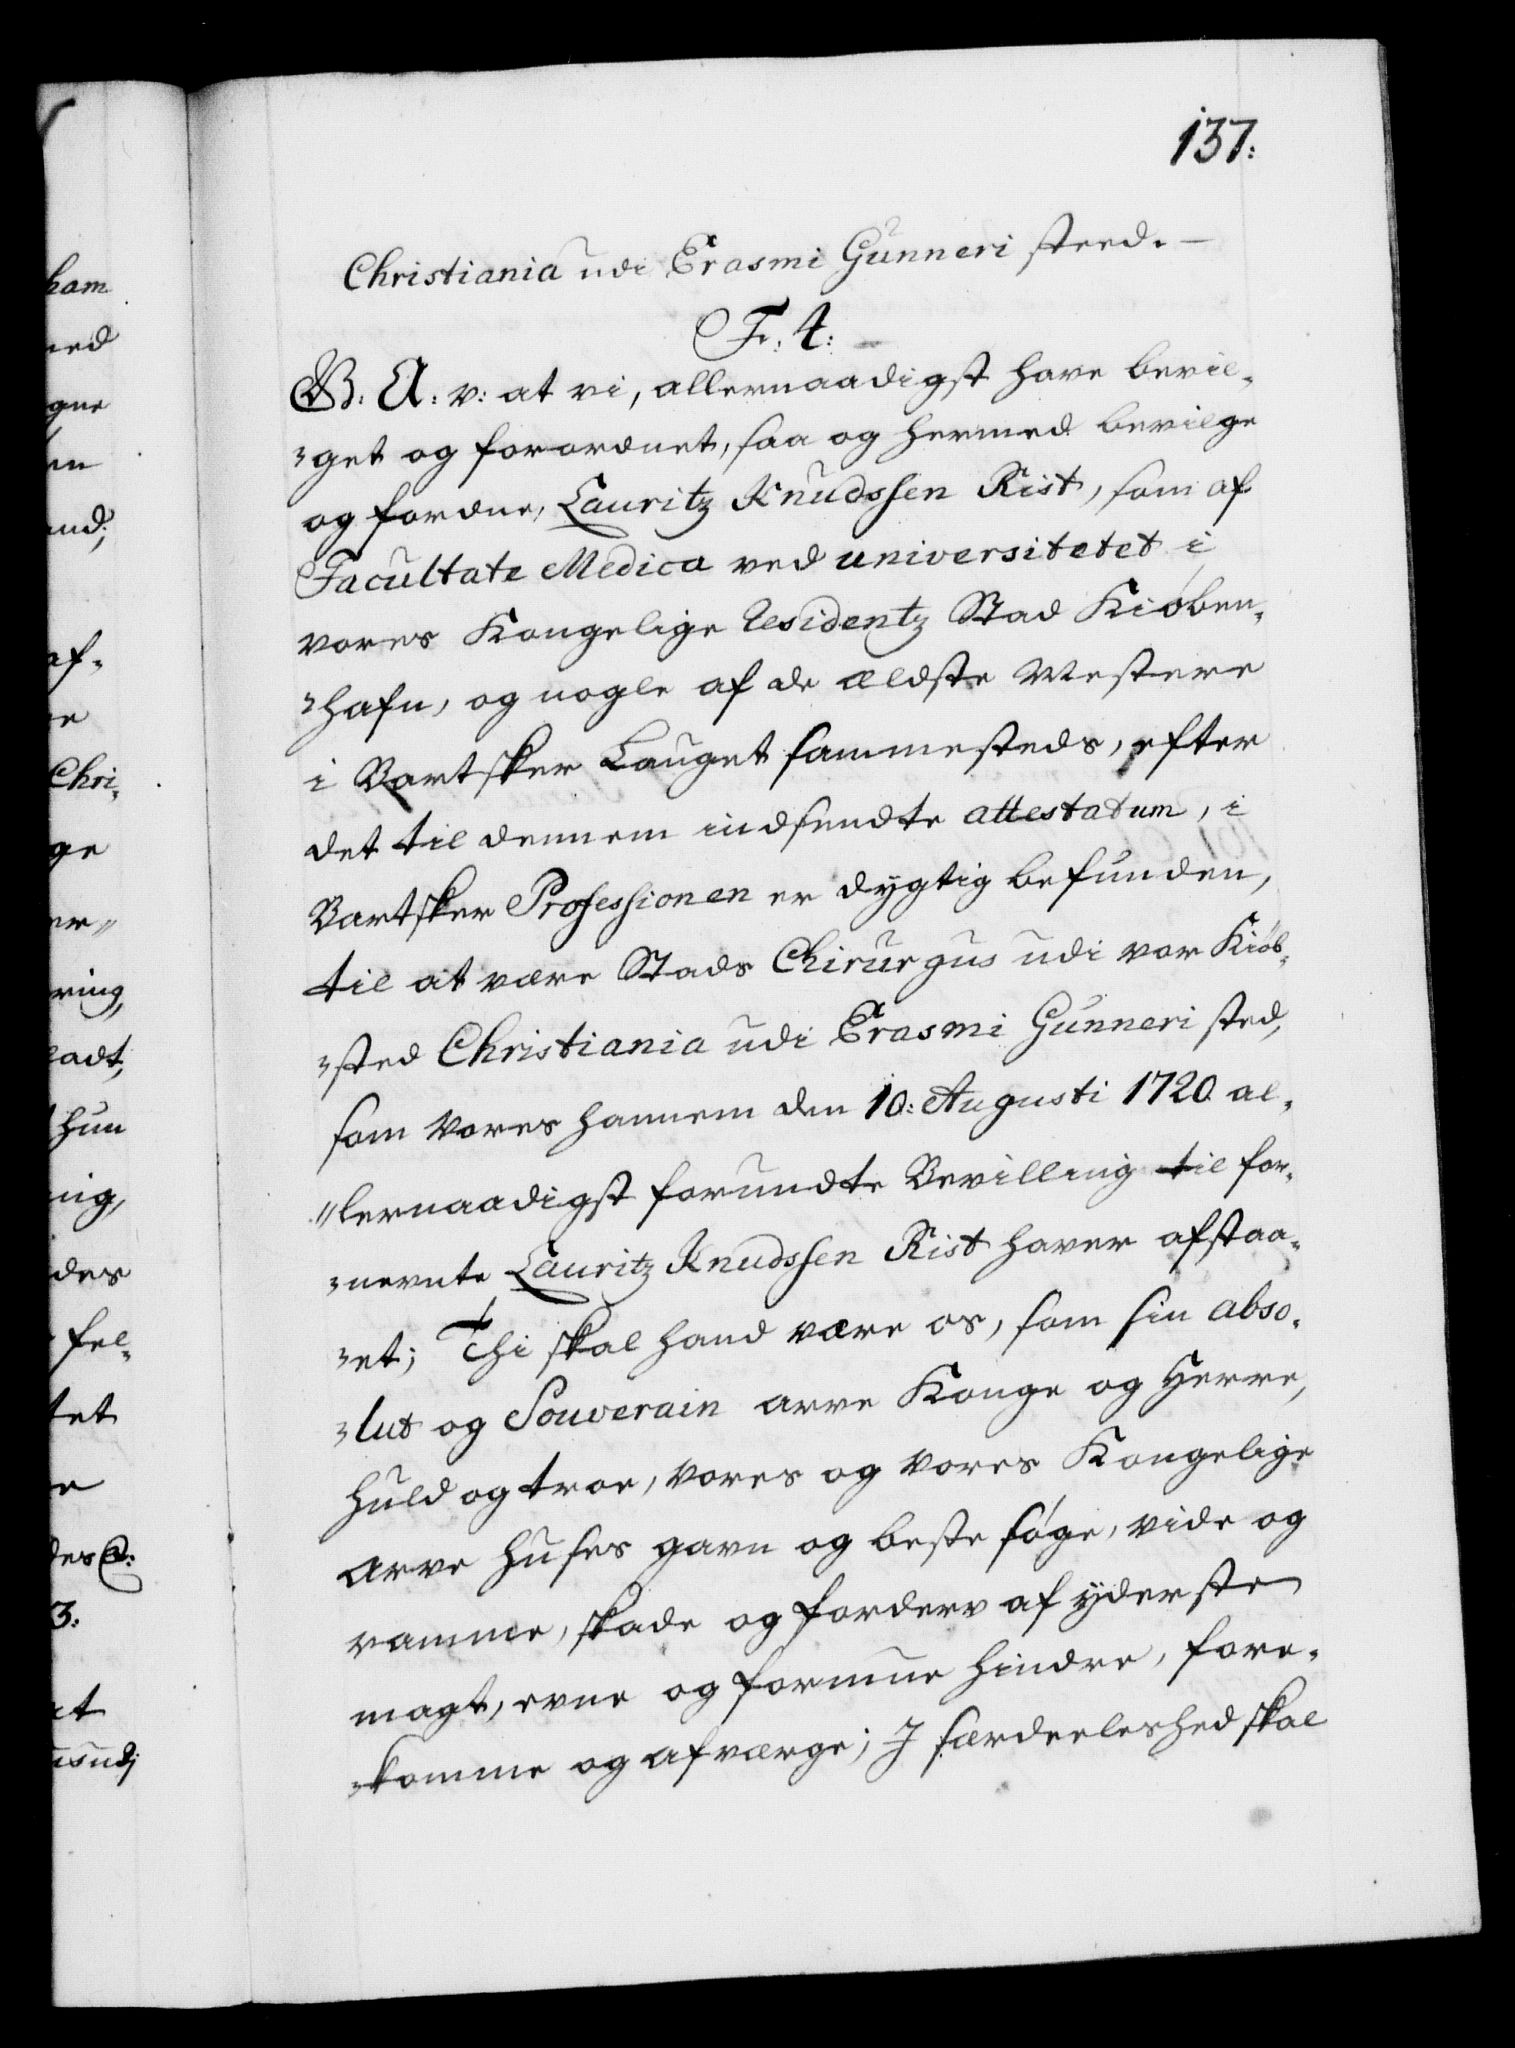 137:
Christiania udi Erasmi Gunneri steed. —
F. 4:
G: A: v: at vi, allernaadigst have bevil-
get og forordnet, saa og hermed bevilge
og fordne, Lauritz Knudssen Rist, som af
Facultate Medica ved universitetet i
vores Kongelige Residentz Stad Kiøben-
hafn, og nogle af de ældste Mestere
i Bartsker Lauget sammesteds, efter
det til dennem indsendte attestatum, i
Bartsker Professionen er dygtig befunden,
til at være Stads Chirurgus udi vor Kiøb-
sted Christiania udi Erasmi Gunneri sted,
som vores hannem den 10: Augusti 1720 al-
lernaadigst forundte Bevilling til for-
nevnte Lauritz Knudssen Rist haver afstaa-
et; Thi skal hand være os, som sin abso-
lut og Souverain arve Konge og Herre,
huld og troe, vores og vores Kongelige
arve Huses gavn og beste søge, vide og
ramme, skade og forderv af yderste
magt, evne og formue hindre, fore-
komme og afværge; J særdeeleshed skal
ham
ned
gne
en
and;
af-
e
Chri-
ge
er
ring,
ladt,
hun
nig,
des
fel-
tet
e
des C:
3:
at